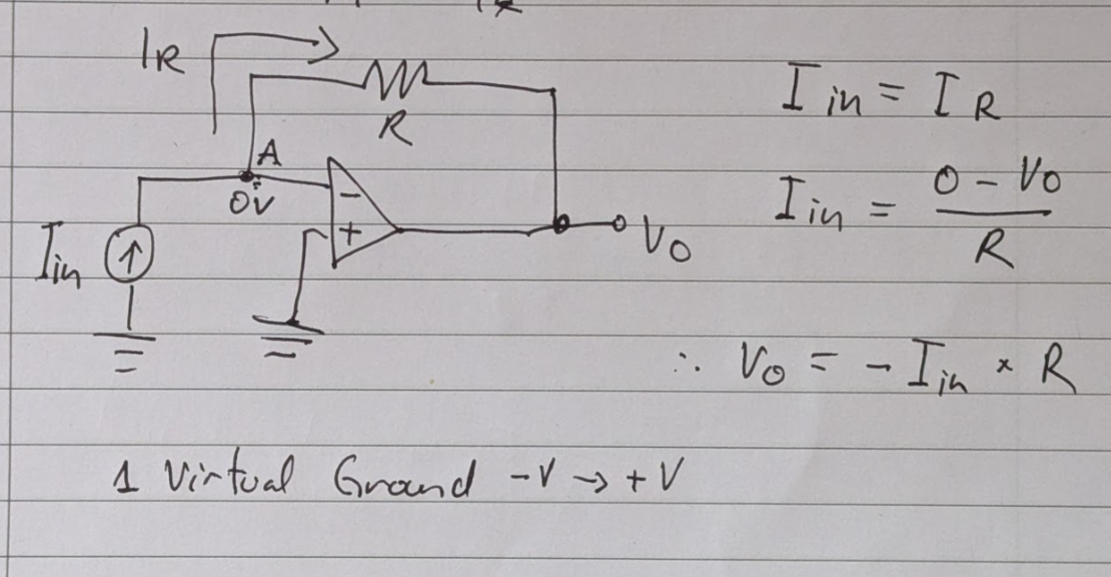 I_R
R
A
0V
−
+
I_in
V_O
I_in = I_R
I_in = (0 − V_O) / R
∴ V_O = − I_in × R
1 Virtual Ground −V → +V